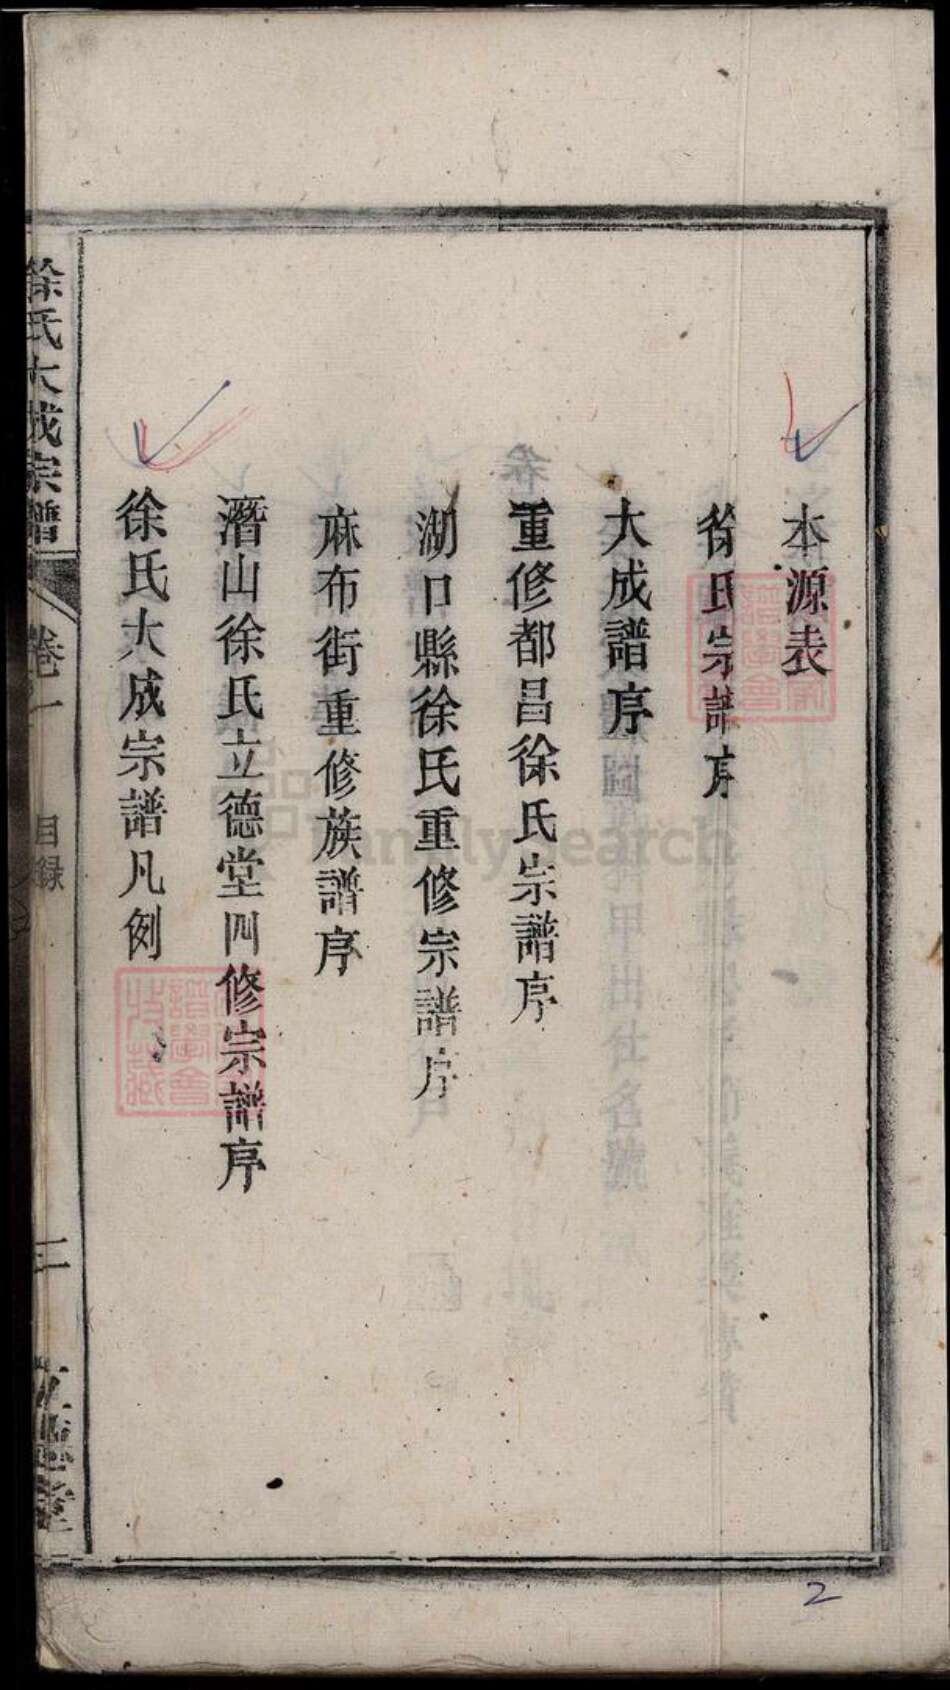 本源表
徐氏宗譜序
大成譜序
重修都昌徐氏宗譜序
湖口縣徐氏重修宗譜序
麻布街重修族譜序
潛山徐氏立德堂四修宗譜序
徐氏大成宗譜凡例
徐氏大成宗譜
卷一
目録
二
立德堂
2
familysearch